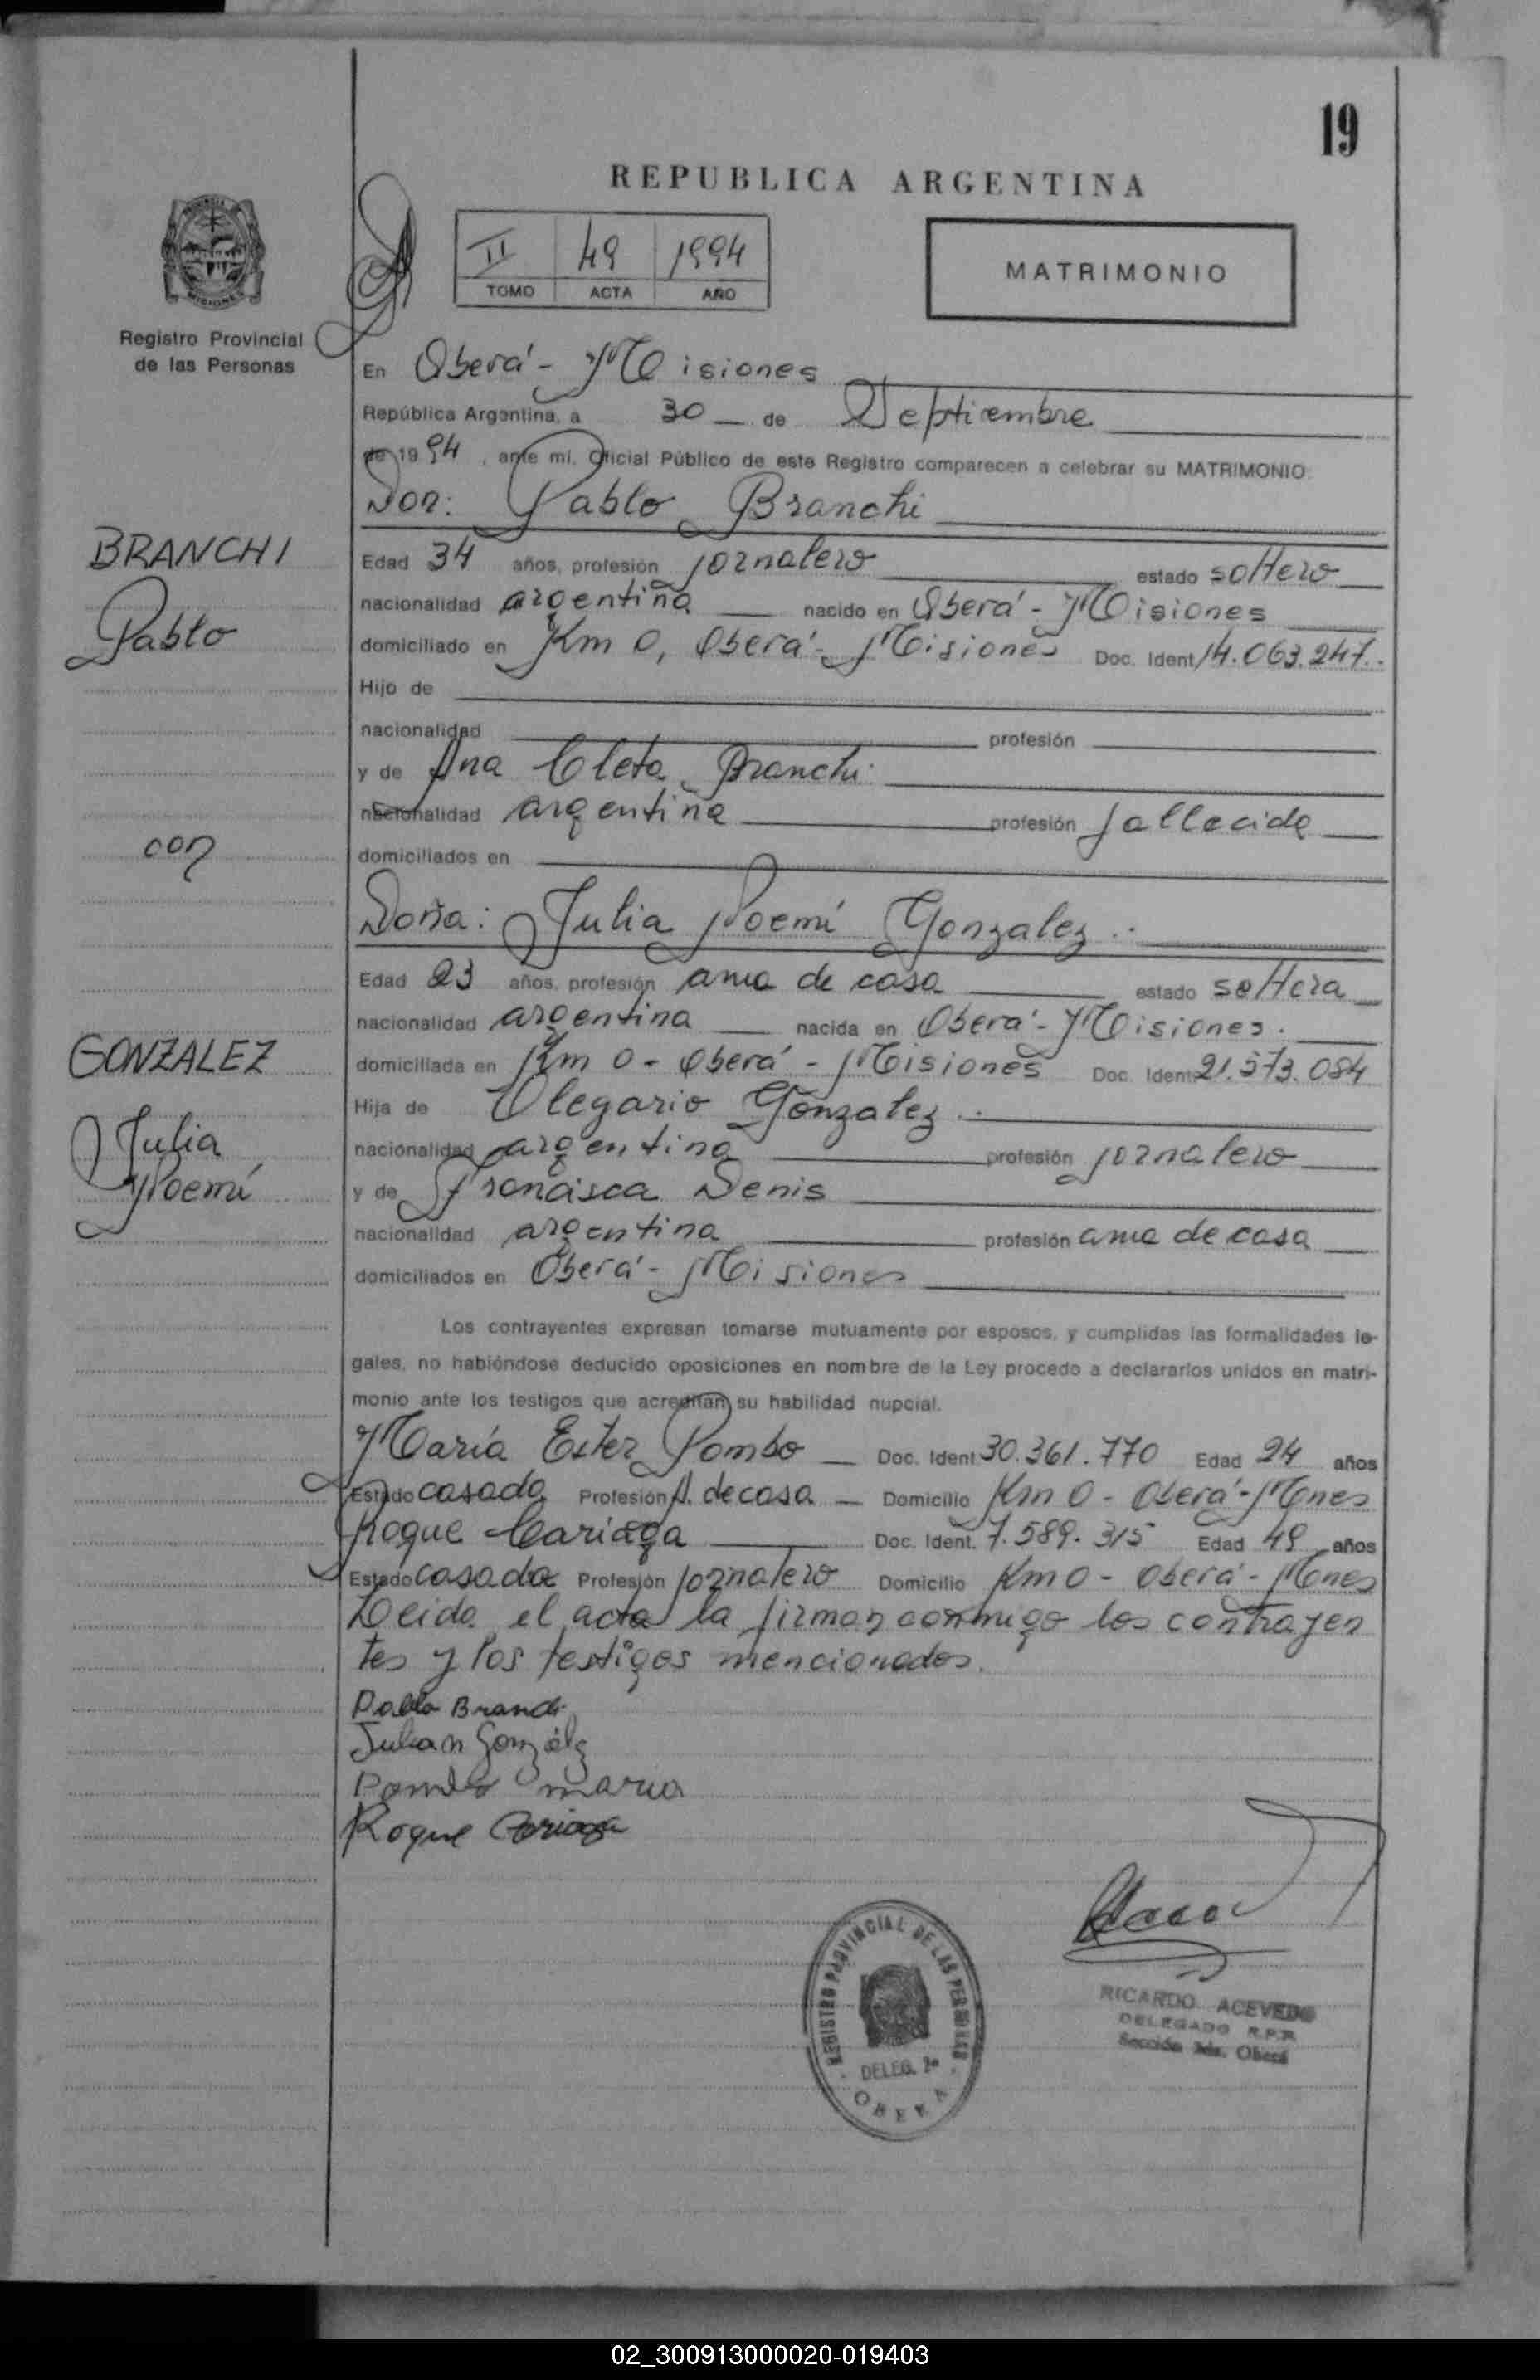 19
REPUBLICA ARGENTINA
II 49 1994
TOMO ACTA AÑO
MATRIMONIO
Registro Provincial
de las Personas
En Oberá - Misiones
República Argentina, a 30 de Septiembre
de 1994, ante mi, Oficial Público de este Registro comparecen a celebrar su MATRIMONIO:
Don: Pablo Branchi
BRANCHI
Pablo
Edad 34 años, profesión jornalero estado soltero
nacionalidad argentina nacido en Oberá - Misiones
domiciliado en Km 0, Oberá - Misiones Doc. Ident 14.063.247.-
Hijo de
nacionalidad profesión
y de Ana Cleta Branchi
nacionalidad argentina profesión fallecida
con
domiciliados en
Doña: Julia Noemí Gonzalez
Edad 23 años, profesión ama de casa estado soltera
nacionalidad argentina nacida en Oberá - Misiones.
GONZALEZ
Julia
Noemí
domiciliada en Km 0 - Oberá - Misiones Doc. Ident. 21.573.084
Hija de Olegario Gonzalez
nacionalidad argentina profesión jornalero
y de Francisca Denis
nacionalidad argentina profesión ama de casa
domiciliados en Oberá - Misiones
Los contrayentes expresan tomarse mutuamente por esposos, y cumplidas las formalidades le-
gales, no habiéndose deducido oposiciones en nombre de la Ley procedo a declararlos unidos en matri-
monio ante los testigos que acreditan su habilidad nupcial.
María Ester Pombo Doc. Ident 30.361.770 Edad 24 años
Estado casada Profesión A. de casa Domicilio Km 0 - Oberá - Mnes
Roque Cariaga Doc. Ident. 7.589.315 Edad 49 años
Estado casado Profesión jornalero Domicilio Km 0 - Oberá - Mnes
Leida el acta la firman conmigo los contrayen
tes y los testigos mencionados.
Pablo Branchi
Julia n González
Pombo maria
Roque Cariaga
REGISTRO PROVINCIAL DE LAS PERSONAS
DELEG. 2ª
OBERA
RICARDO ACEVEDO
DELEGADO R.P.P.
Sección 2da. Oberá
02_300913000020-019403